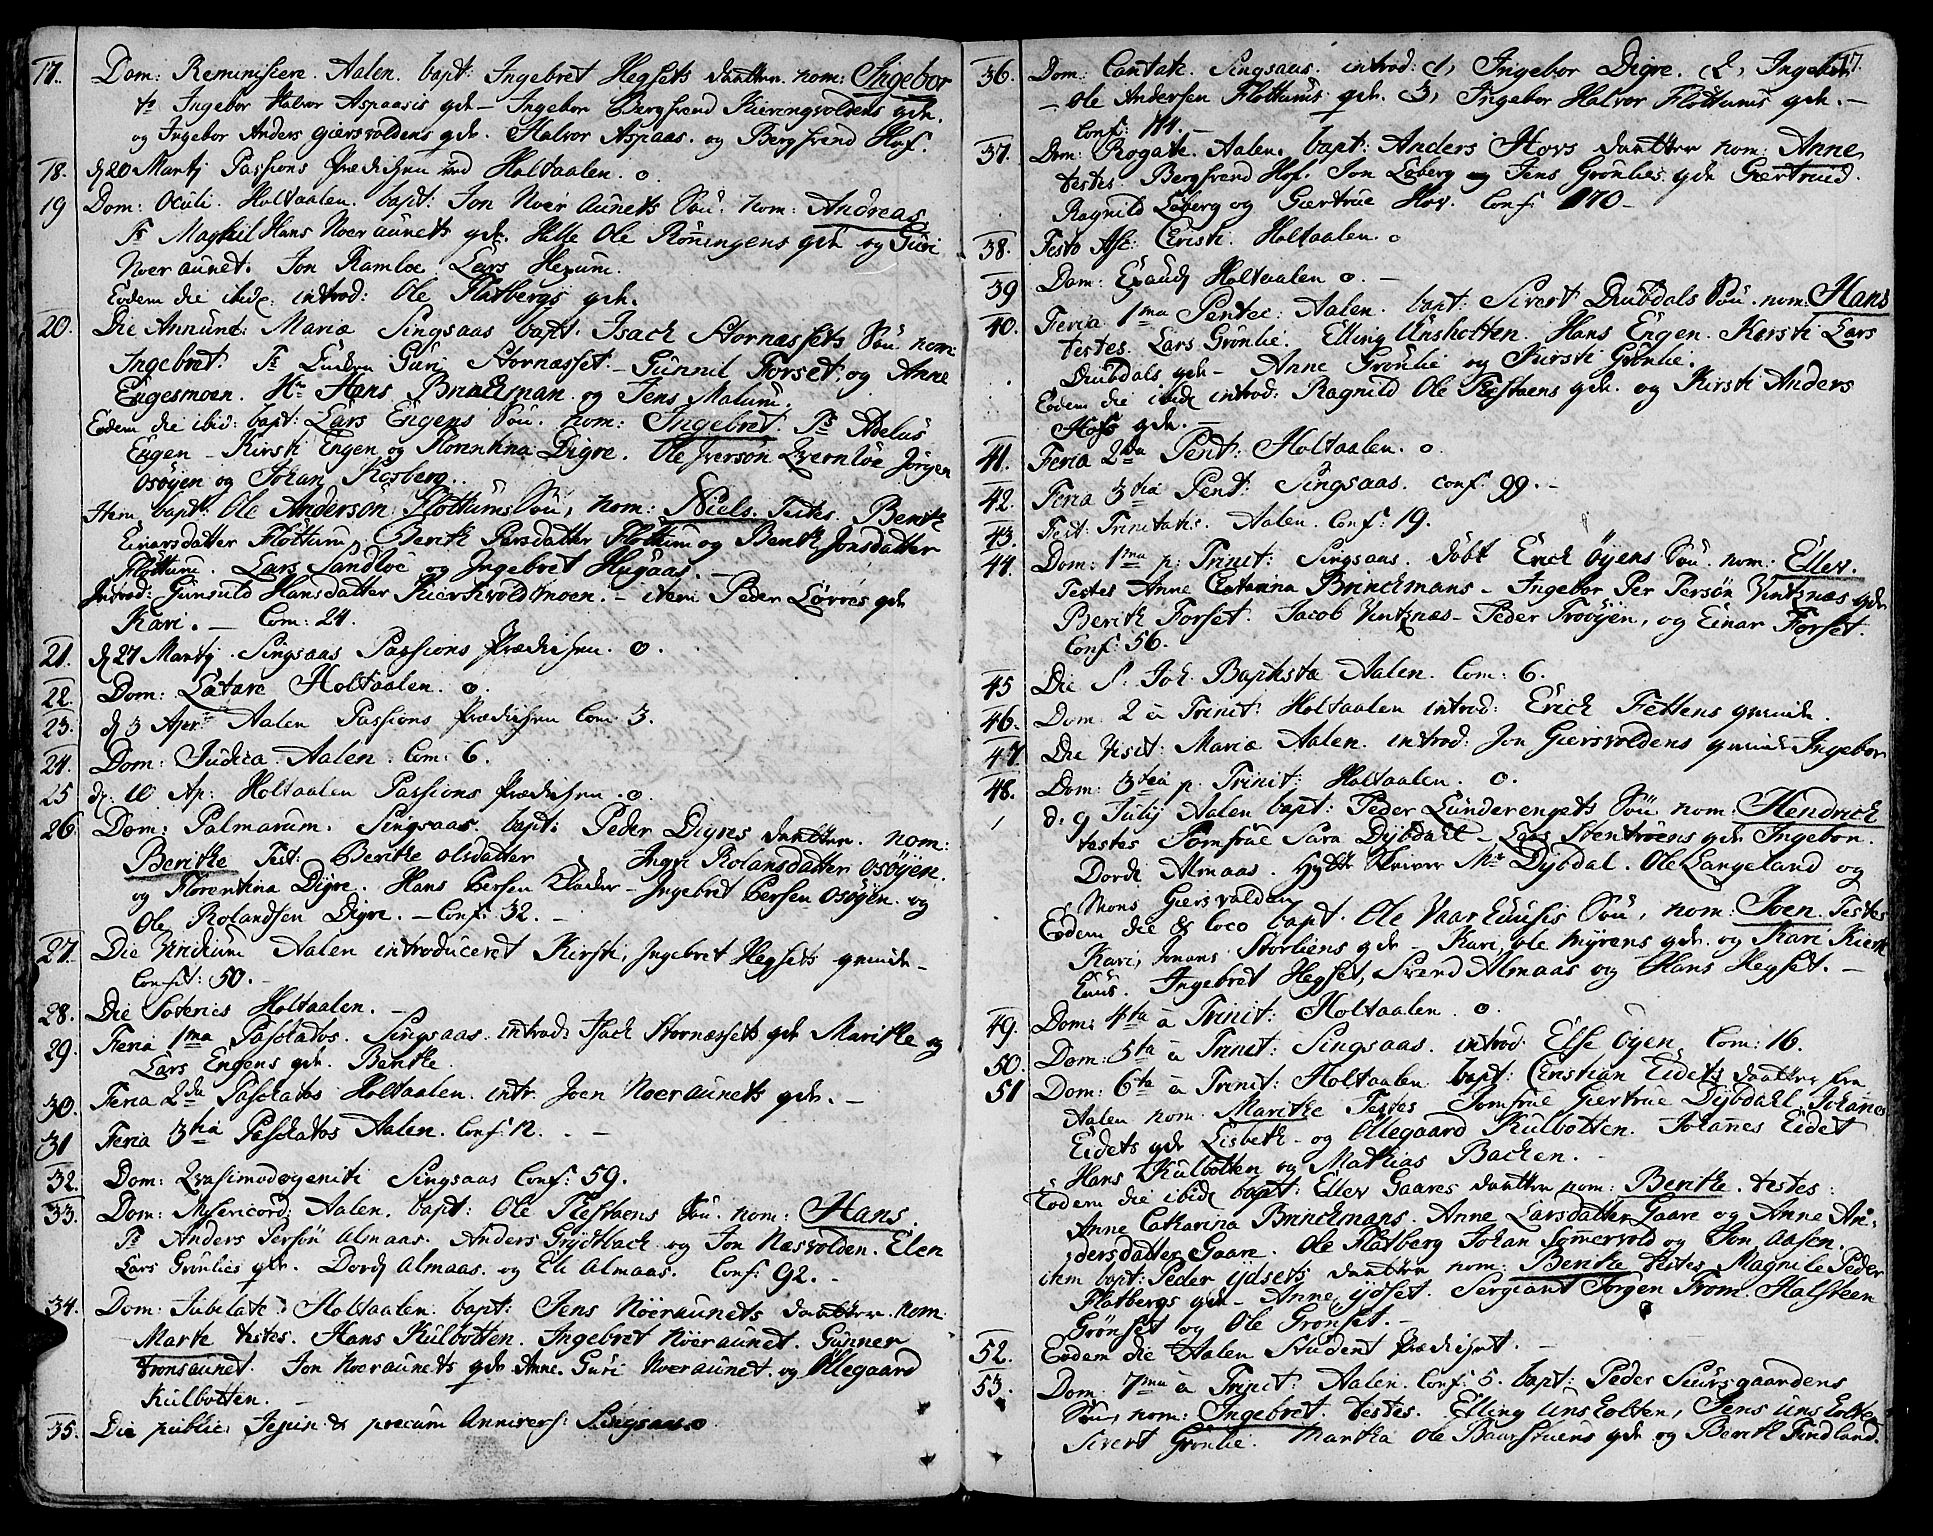 17. Dom: Reminiscere. Aalen. bapt: Ingebret Hegsets daatter. nom: Ingebor
Ts Ingebor Halvor Aspaasis qde - Ingebor Bergsvend Kieringvoldens qde.
og Ingebor Anders giersvoldens qde. Halvor Aspaas. og Bergsvend Hof.
18. d 20 Martj Passions Prædiken ved Holtaalen. o.
19 Dom: Oculi. Holtaalen. bapt: Jon Noer aunets Søn. nom: Andreas
Ts Maghil Hans Noeraunets qde. Hille Ole Røningens qde og Guri
Noeraunet. Jon Ramloe Lars Hexum.
Eodem die ibid: introd: Ole Flatbergs qde.
20. Die Annunc: Mariæ Singsaas bapt: Isach Stornæssets Søn nom:
Ingebret. Ts Guri Stornæsset - Gunnil Forset, og Anne
Engesmoen. Hr Hans Brinckman og Jens Malum.
Eodem die ibid: bapt: Lars Engens Søn. nom: Ingebret. Ts Adelus
Engen - Kirsti Engen og Florentina Digre. Ole Iversøn Qvernløe Jørgen
Osøyen og Johan Kosberg.
Item bapt: Ole Andersøn Flottums Søn, nom: Niels. Testes. Berith
Einarsdatter Flottum, Berith Persdatter Flottum og Berith Jonsdatter
Flottum. Lars Sandløe og Ingebret Hugaas. -
Introd: Gunuld Hansdatter Kierkvoldmoen. - item Peder Løvøes qde
Kari. - Com: 24.
21. d 27 Martj. Singsaas Passions Prædiken. o.
22. Dom: Lætare Holtaalen. o.
23. d 3 Apr: Aalen Passions Prædiken Com 3.
24. Dom: Judica. Aalen. Com: 6.
25 d: 10 Ap: Holtaalen Passions Prædiken. o.
26. Dom: Palmarum. Singsaas. bapt: Peder Digres daatter. nom:
Berithe Test: Berithe Olsdatter Ingri Rolansdatter Osøyen.
og Florentina Digre. Hans Persen Kløder - Ingebret Persen Osøyen. og
Ole Rolandsen Digre. - Conf: 32. -
27. Die Viridium Aalen introduceret Kirsti, Ingebret Hegsets qvinde -
Confit: 50. -
28. Die Soteries Holtaalen. -
29. Feria 1ma Paschatos. Singsaas. introd: Isach Stornæssets qde Marithe og
Lars Engens qde. Berithe.
30. Feria 2da Paschatos Holtaalen. intr. Joen Noeraunets qde. -
31 Feria 3tia Paschatos Aalen. Conf. 12. -
32. Dom: Qvasimodogeniti Singsaas Conf: 59.
33. Dom: Misericord: Aalen. bapt: Ole Flestaens Søn. nom: Hans.
Ts Anders Persøn Almaas. Anders Grythbach og Jon Næsvolden. Elen
Lars Grønlies qde. Dordj Almaas. og Eli Almaas. Conf: 92. -
34. Dom: Jubilate. Holtaalen. bapt: Jens Nöeraunets daatter. nom:
Marte testes. Hans Kulbotten. Ingebret Nöeraunet. Gunner
Tronsaunet. Jon Noeraunets qde Anne. Guri Noeraunet. og Ollegaard
Kulbotten. -
35. Die public: Jejun & precum Annivers: Singsaas. o.
17.
36. Dom: Cantate. Singsaas. introd: 1, Ingebor Digre. 2, Ingebor
- Ole Andersen Flottums qde. 3, Ingebor Halvor Flottums qde. -
Conf: 114. -
37. Dom: Rogate. Aalen. bapt: Anders Hovs daatter nom: Anne,
testes. Bergsvend Hof. Jon Løberg og Jens Grønlies qde Giertrud.
Ragnild Løberg og Giertrue Hov. Conf: 170 -
38. Festo Asc: Christi. Holtaalen. o
39 Dom: Exaudj Holtaalen o. -
40. Feria 1ma Pentec: Aalen. bapt: Sivert Dubdals Søn. nom: Hans
testes. Lars Grønlie. Elling Unsholten. Hans Engen. Kirsti Lars
Dubdals qde - Anne Grønlie og Kirsti Grønlie.
Eodem die ibid: introd: Ragnild Ole Flestaens qde. og Kirsti Anders
Hofs qde. -
41. Feria 2da Pent: Holtaalen. o.
42. Feria 3tia Pent: Singsaas. conf: 99. -
43. Fest: Trinitatis. Aalen. Conf: 19.
44. Dom: 1ma p: Trinit: Singsaas. döbt Erich Öyens Søn. nom: Ellev.
Testes Anne Catarina Brinckmans - Ingebor Per Persøn Vintznæs qde
Berith Forset. Jacob Vintznæs - Peder Troöyen, og Einar Forset.
Conf: 56.
45 Die S. Joh. Baptistæ Aalen. Com: 6.
46. Dom: 2 à Trinit: Holtaalen introd: Erich Fettens qvinde.
47. Die Visit: Mariæ Aalen. introd: Jon Giersvoldens qvinde Ingebor
48. Dom: 3tia p. Trinit: Holtaalen. o.
d. 9 Julij Aalen bapt: Peder Lunderengets Søn. nom: Hendrich
testes Jomfrue Sara Dybdahl - Lars Stentrøens qde Ingebor.
Dordi Almaas. Hytte Skriver Mr Dybdal. Ole Langeland og
Mons Giersvolden
Eodem die & loco bapt. Ole Vaar Luusis Søn, nom: Joen. Testes
Kari, Jonans Storliens qde - Kari Ole Myrens qde. og Kari Kierk
Luus. Ingebret Hegset, Svend Almaas og Hans Hegset. -
49. Dom: 4ta à Trinit: Holtaalen. o.
50. Dom: 5ta à Trinit: Singsaas. introd: Else Öyen. Com: 16.
51 Dom: 6ta à Trinit: Holtaalen. bapt: Christian Eidets daatter fra
Aalen nom. Marithe Testes Jomfrue Giertrue Dybdahl. Johannes
Eidets qde Lisbeth - og Ollegaard Kulbotten. Johannes Eidet
Hans Kulbotten og Mathias Bachen. -
Eodem die ibid: bapt: Ellev Gaares daatter nom: Berithe. testes:
Anne Catharina Brinckmans. Anne Larsdatter Gaare og Anne An-
dersdatter Gaare. Ole Flatberg Johan Somervold og Jon Aasen.
item bapt: Peder Ydsets daatter nom: Berithe testes Magnild Peder
Flatbergs qde - Anne Ydset. Sergiant Jørgen From. Halsteen
Grønset og Ole Grønset. -
52. Eodem die Aalen Student Prædiket. -
53. Dom: 7ma à Trinit: Aalen. Conf: 5. bapt: Peder Siursgaardens
Søn, nom: Ingebret. testes. Elling Unsholten, Jens Unsholten
Sivert Grønlie. Martha Ole Baarstuens qde og Berith Finland.